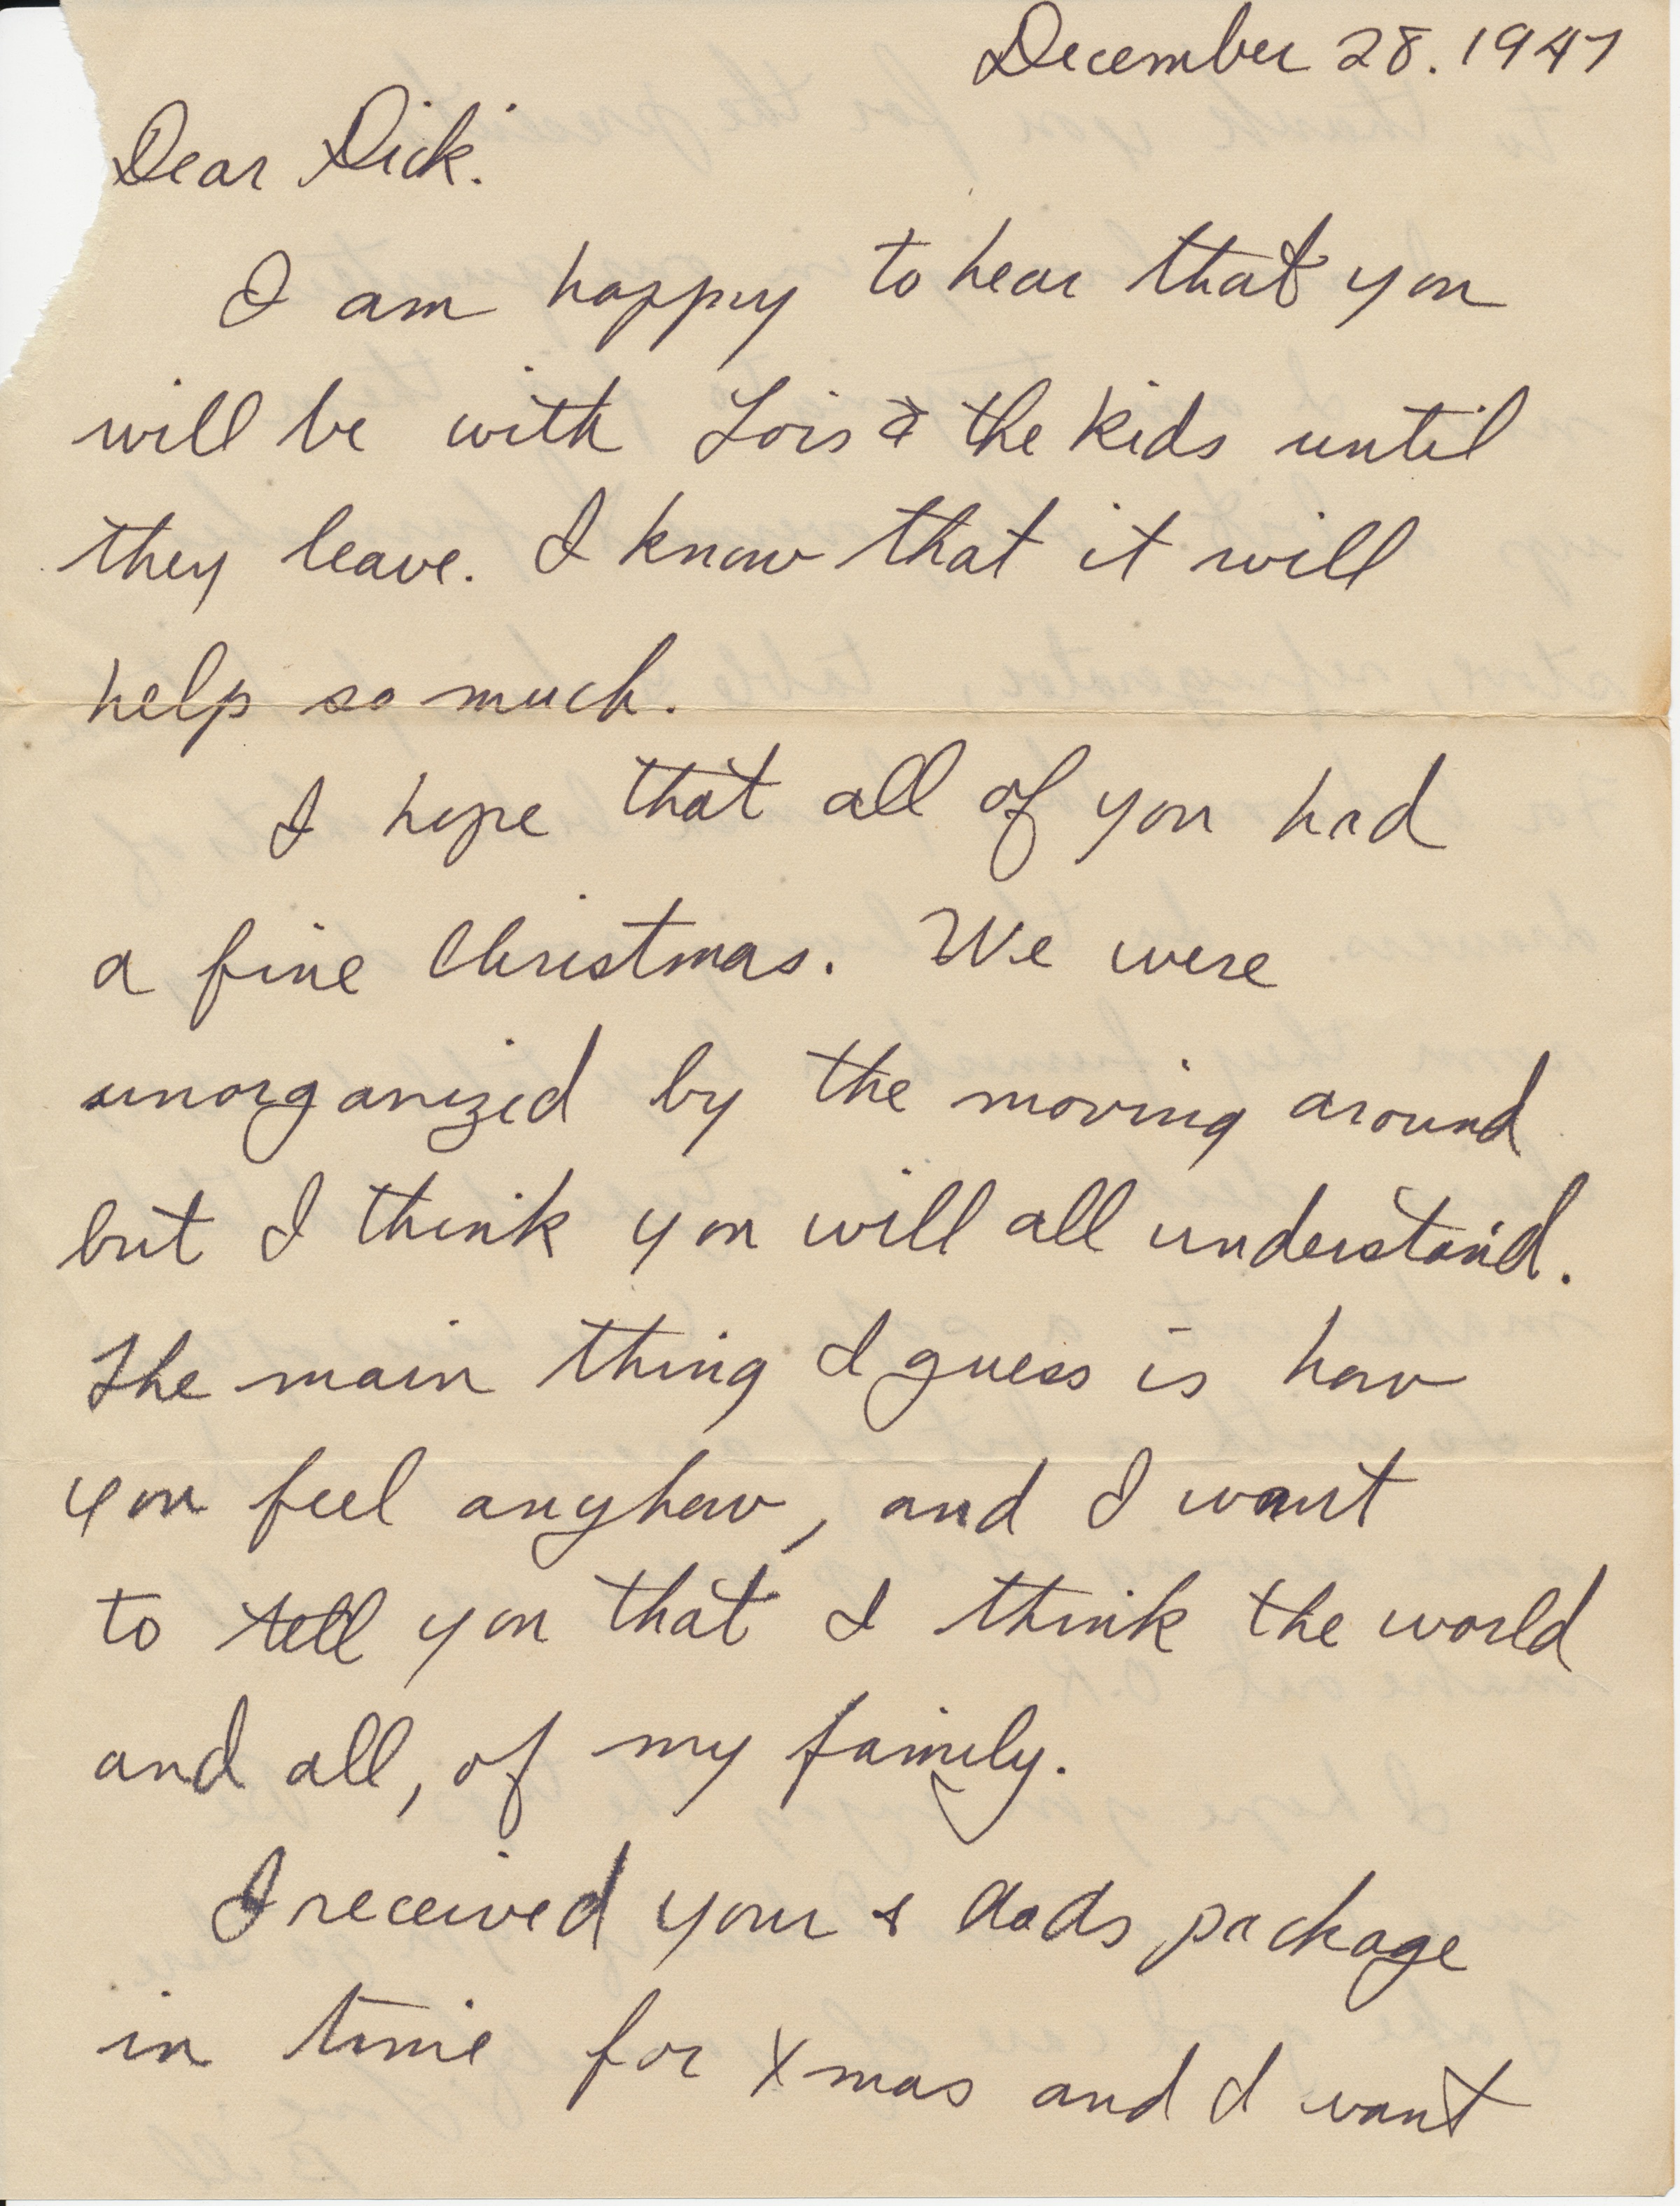 December 28. 1947
Dear Dick:
I am happy to hear that you
will be with Lois & the kids until
they leave. I know that it will
help so much.
I hope that all of you had
a fine Christmas. We were
unorganized by the moving around
but I think you will all understand.
The main thing I guess is how
you feel anyhow, and I want
to tell you that I think the world
and all, of my family.
I received your & dads package
in time for Xmas and I want